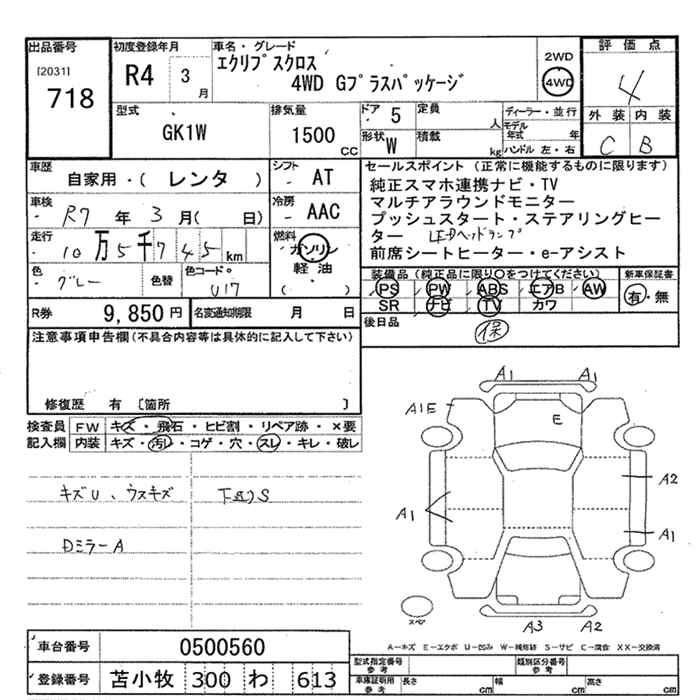 出品番号 初度登録年月 車名・グレード 2WD 評価点
[2031] R4 3月 エクリプスクロス 4WD
718 4WD Gプラスパッケージ 4
型式 排気量 ドア 5 定員 人 ディーラー・並行 外装 内装
GK1W 1500 CC 形状 W 積載 kg モデル年式 年 C B
ハンドル 左・右
車歴 シフト セールスポイント (正常に機能するものに限ります)
自家用・( レンタ ) AT 純正スマホ連携ナビ・TV
車検 冷房 マルチアラウンドモニター
R7 年 3 月( 日) AAC プッシュスタート・ステアリングヒー
走行 燃料 ター LEDヘッドランプ
10万5千745 km ガソリン 前席シートヒーター・e-アシスト
色 色替 色コードNo 軽油 装備品 (純正品に限り○をつけてください) 新車保証書
グレー U17 ( ) PS PW ABS エアB AW 有・無
SR ナビ TV カワ
R券 9,850円 名変通知期限 月 日 後日品 保
注意事項申告欄(不具合内容等は具体的に記入して下さい)
修復歴 有 〔箇所 〕
検査員 FW キズ・飛石・ヒビ割・リペア跡・×要
記入欄 内装 キズ・汚レ・コゲ・穴・スレ・キレ・破レ
キズU、ウスキズ 下回りS
DミラーA
A1 A1
A1E E
A2
A1 A1
スペア A3 A2
A-キズ E-エクボ U-凹み W-補修跡 S-サビ C-腐食 XX-交換済
車台番号 0500560
登録番号 苫小牧 300 わ 613
型式指定番号 参考 類別区分番号 参考
車庫証明用 参考 長さ cm 幅 cm 高さ cm